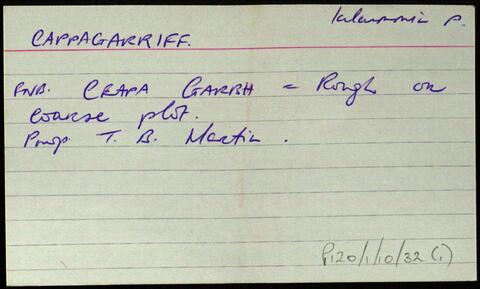 Kilcummin P.
CAPPAGARRIFF.
PNB. CEAPA GARBH = Rough or
coarse plot.
Prop T. B. Martin.
P120/1/10/32 (1)